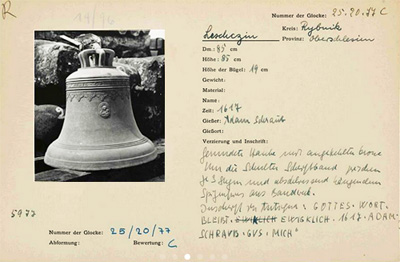 R
19/96
Nummer der Glocke: 25.20.77 C
Leschczin
Kreis: Rybnik
Provinz: Oberschlesien
Dm.: 85 cm
Höhe: 85 cm
Höhe der Bügel: 19 cm
Gewicht:
Material:
Name:
Zeit: 1617
Gießer: Adam Schraub
Gießort:
Verzierung und Inschrift:
Gerundete Haube mit
Um die Schulter Schriftband zwischen
und
aus
Inschrift in Antiqua: GOTTES. WORT.
BLEIBT. EWIGKLICH. 1617. ADAM.
SCHRAUB. GVS. MICH"
5977
Nummer der Glocke: 25/20/77
Abformung: Bewertung: C